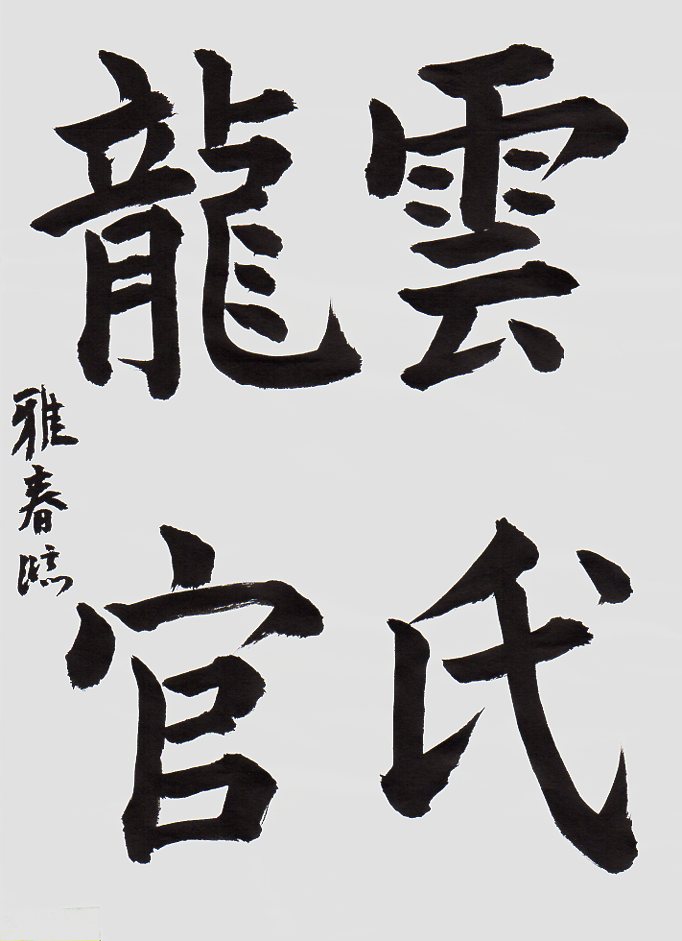 雲氏
龍官
雅春臨